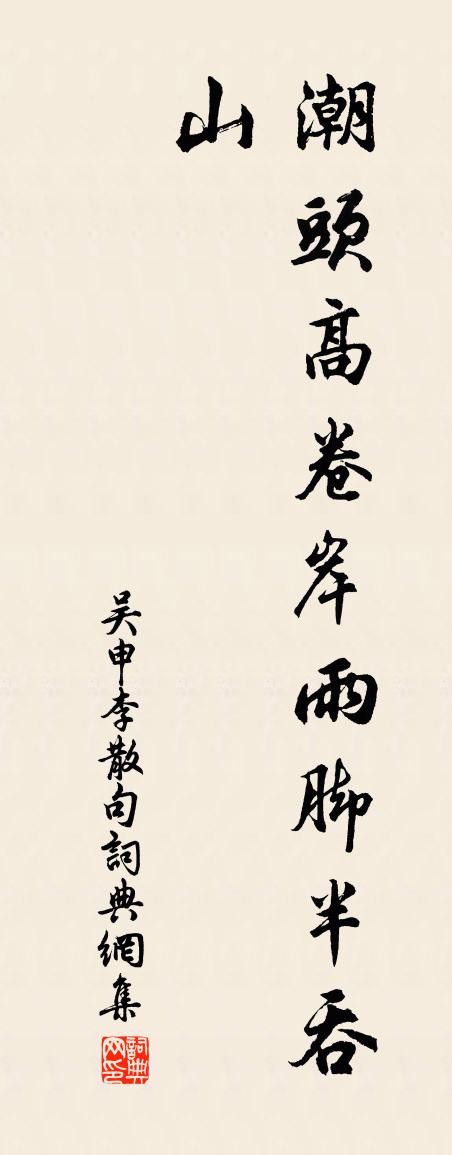 潮頭高卷岸雨脚半吞
山
吴申李散句詞典網集
詞典网印